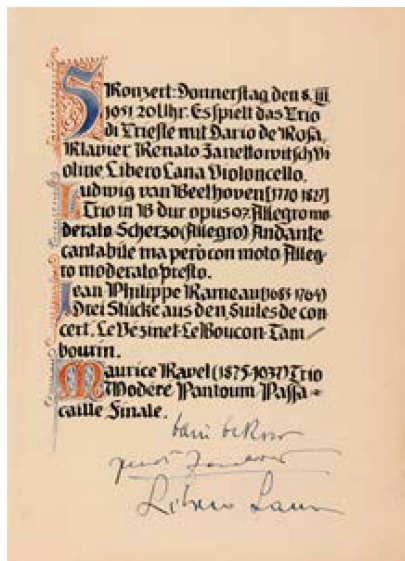 5 Konzert: Donnerstag den 8. III
1951 20 Uhr. Es spielt das Trio
di Trieste mit Dario de Rosa,
Klavier Renato Zanettowitsch Vi
oline Libero Lana Violoncello.
Ludwig van Beethoven (1770 1827)
Trio in B dur opus 97. Allegro mo
derato Scherzo (Allegro) Andante
cantabile ma però con moto Alleg-
ro moderato presto.
Jean Philippe Rameau (1683 1764)
Drei Stücke aus den Suites de con
cert. Le Vézinet-Le Boucon-Tam
bourin.
Maurice Ravel (1875-1937) Trio
Modéré Pantoum Passa-
caille Finale.
Libero Lana